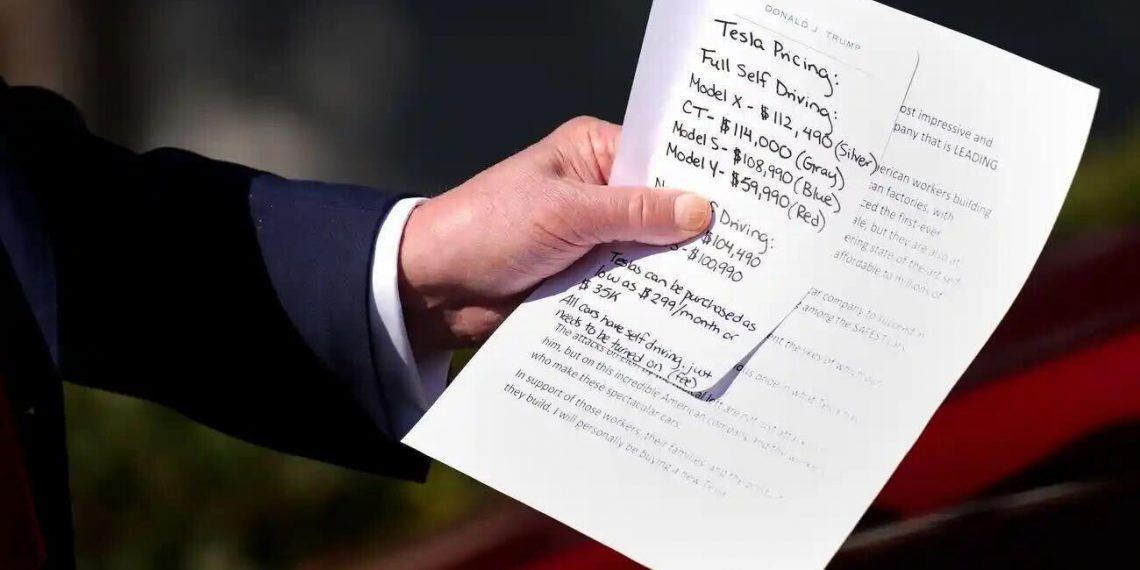 DONALD J. TRUMP
Tesla Pricing:
Full Self Driving:
Model X - $112,490 (Silver)
CT - $114,000 (Gray)
Model S - $108,990 (Blue)
Model Y - $59,990 (Red)
N
Driving:
$104,490
- $100,990
Teslas can be purchased as
low as $299/month or
$35K
All cars have self driving, just
needs to be turned on (fee)
ost impressive and
pany that is LEADING
erican workers building
an factories, with
ced the first-ever
le, but they are also at
ering state-of-the-art self
affordable to millions of
ar company to succeed in
among the SAFEST
ent the likes of which our
ous pride in what Tesla has
The attacks on left are not just atta
him, but on this incredible American company, and the workers
who make these spectacular cars.
In support of those workers, their families, and the product
they build, I will personally be buying a new Tesla